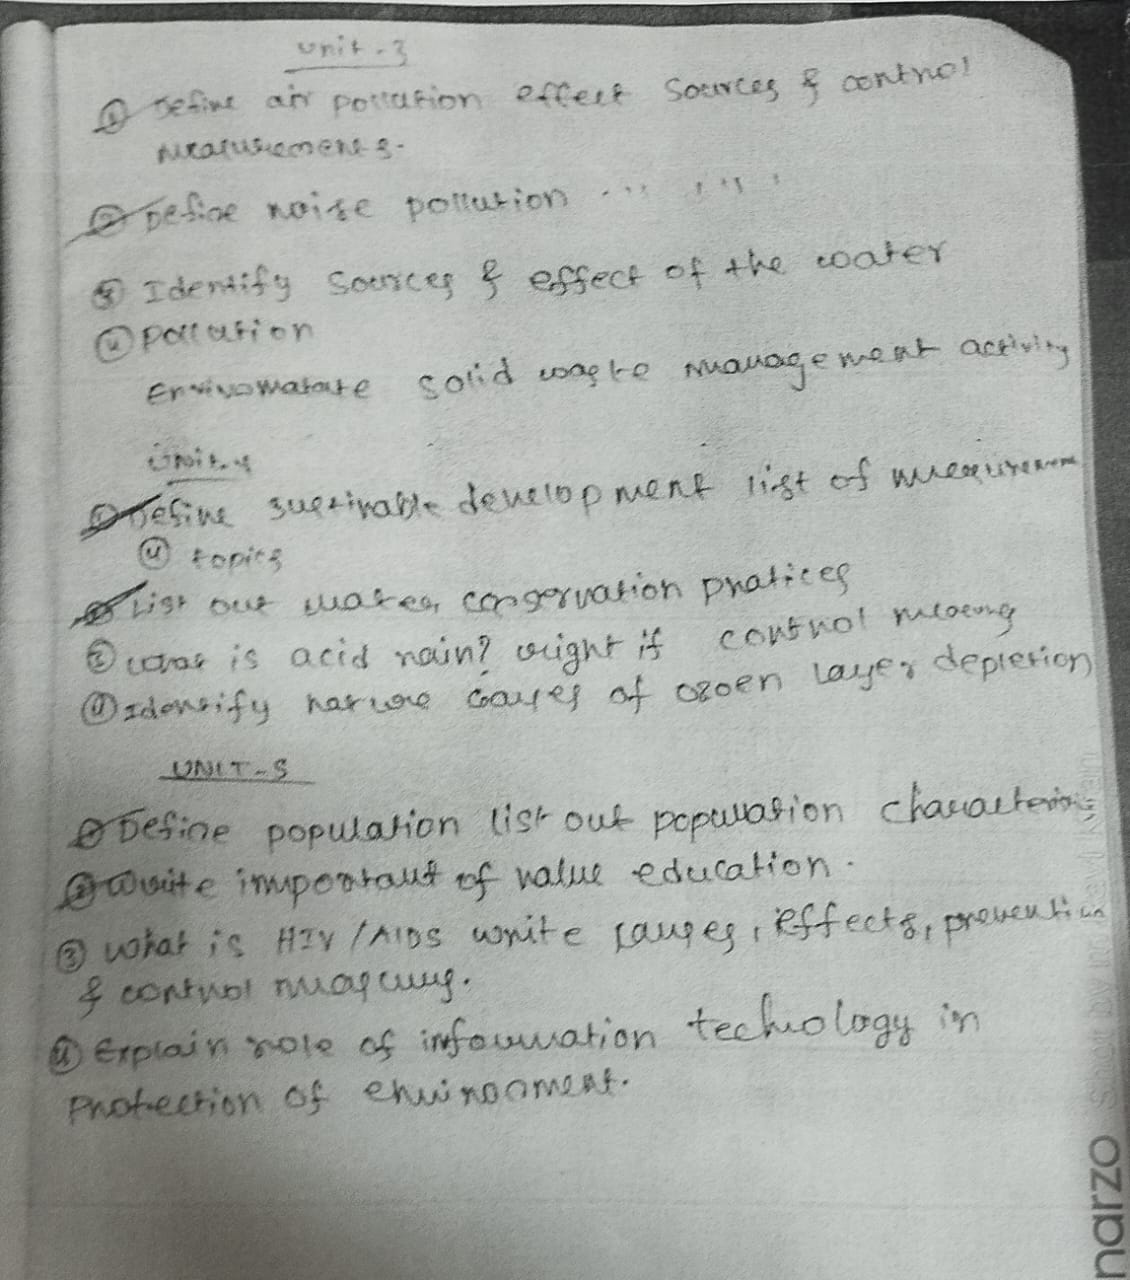 Unit-3
① Define air pollution effect Sources & control
measurements.
② Define noise pollution
③ Identify Sources & effect of the water
④ pollution
solid waste management activity
Unit-4
① Define development list of
④ topics
② List out water conservation pratices
③ what is acid rain? wright if control
④ Identify causes of ozoen layer depletion
UNIT-5
① Define population list out population
② write important of value education.
③ what is HIV/AIDS write causes, effects, prevention
& control
④ Explain role of information technology in
protection of environment.
narzo